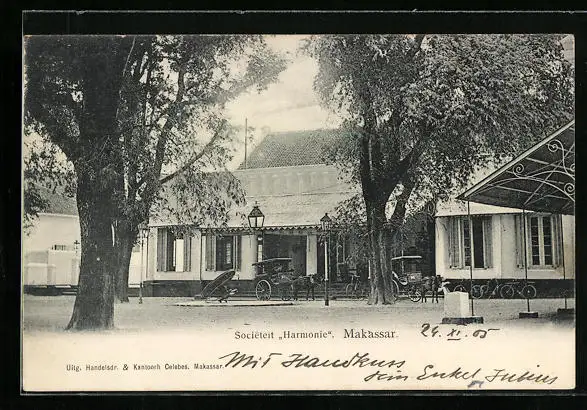 Societeit „Harmonie“. Makassar.
24. XI. 05
Uitg. Handelsdr. & Kantoorh Celebes, Makassar.
Mit Handkuss
dein Enkel Julius